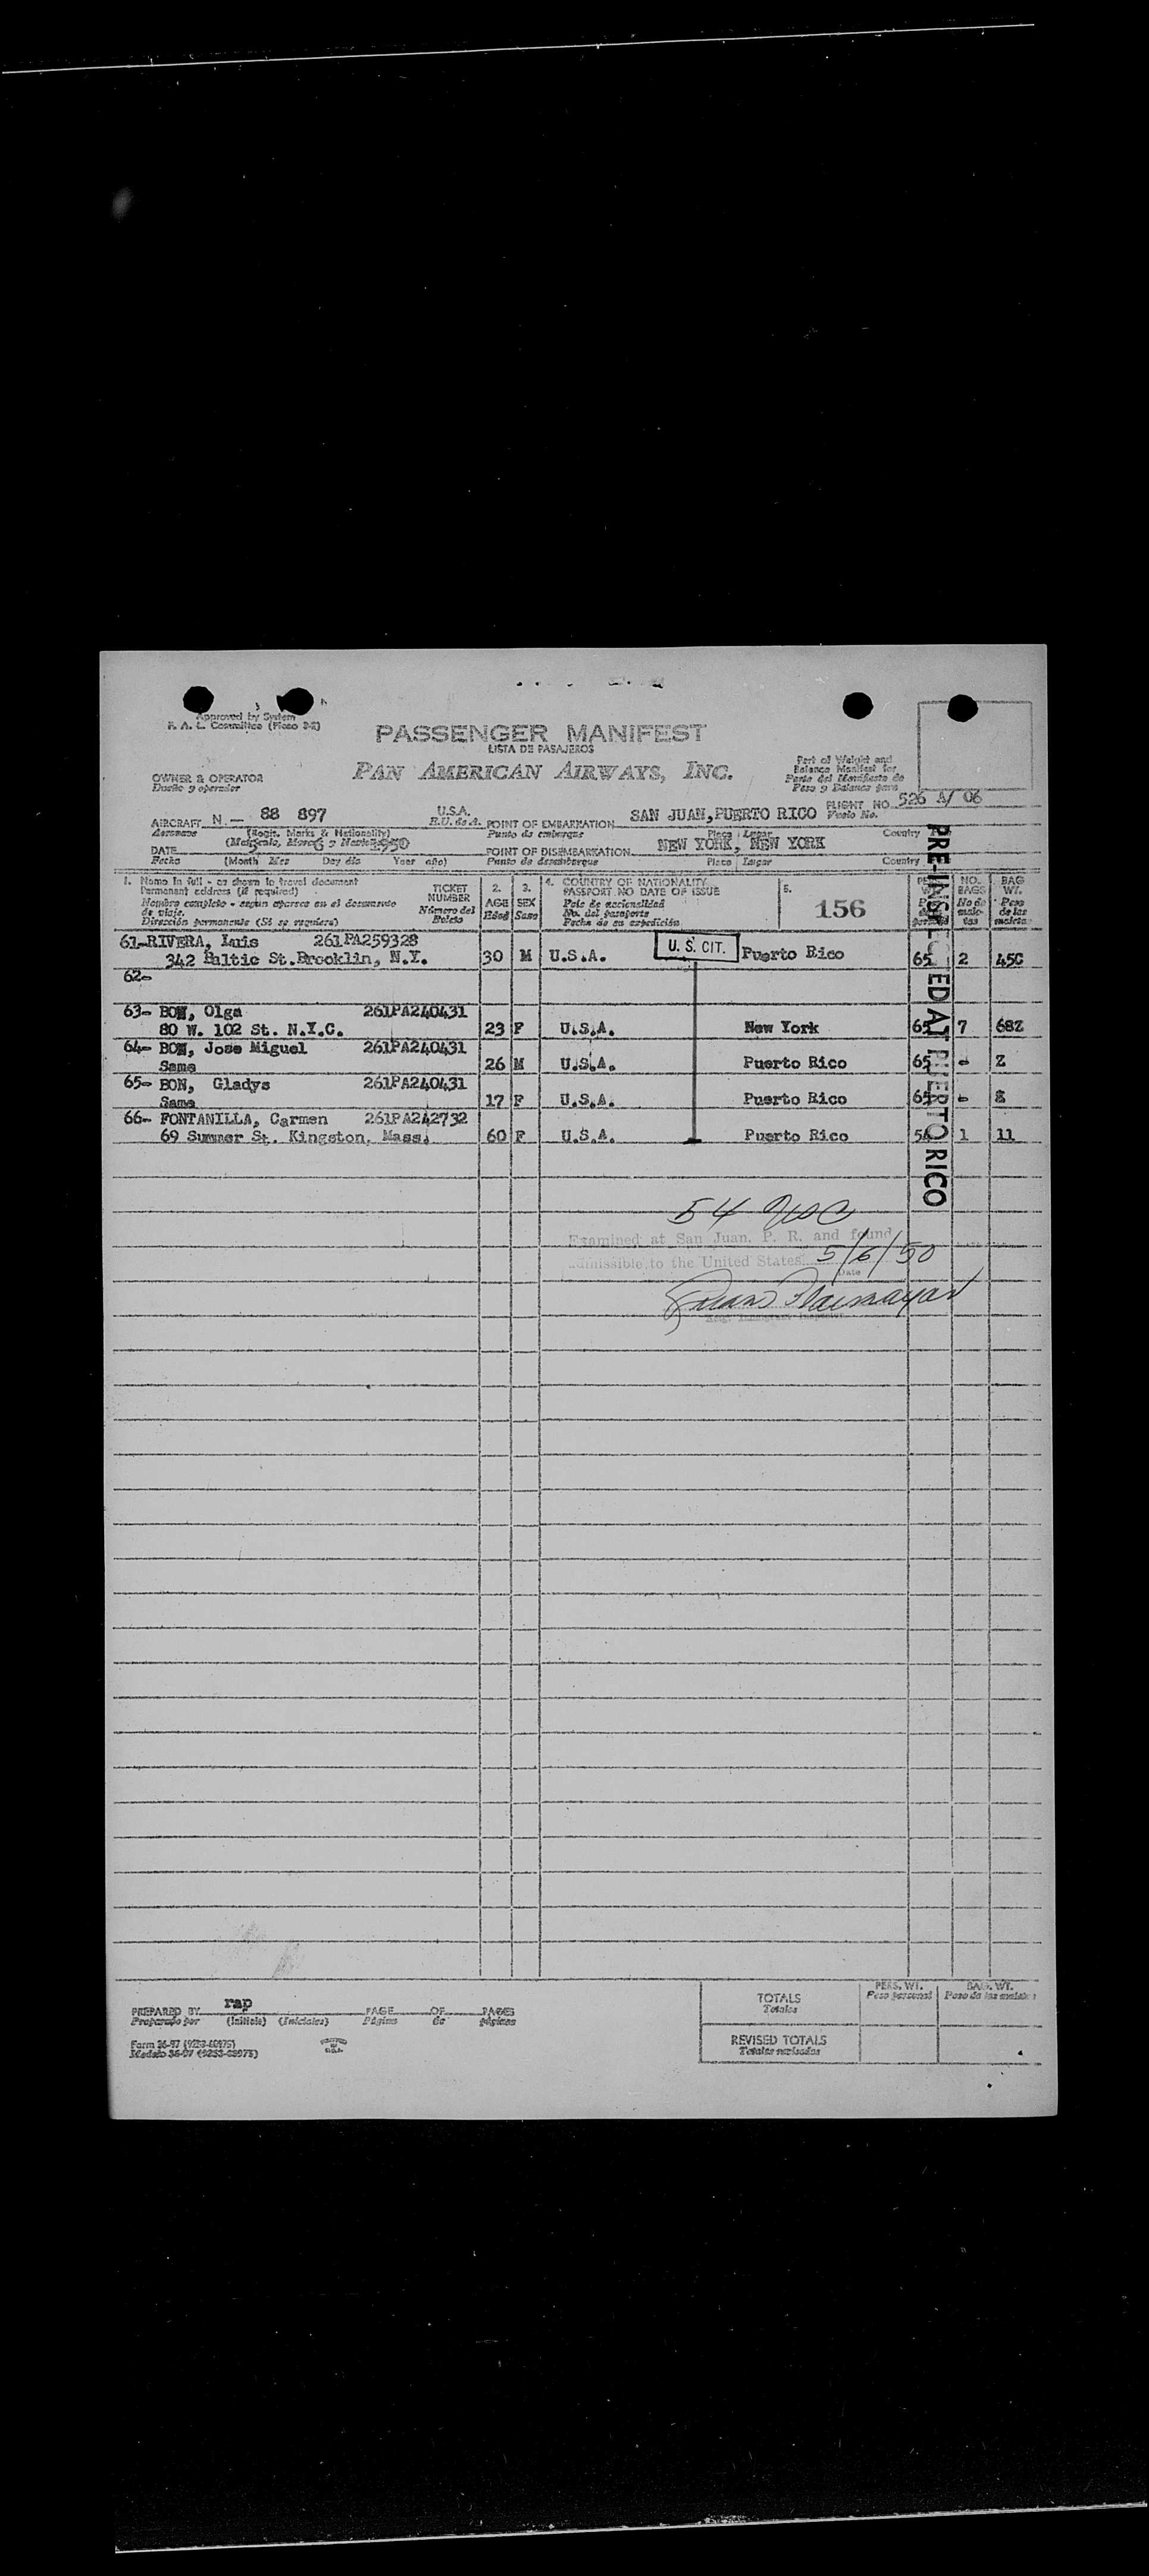 Approved by System
F. A. L. Committee (Fiseo 3-2)
PASSENGER MANIFEST
LISTA DE PASAJEROS
PAN AMERICAN AIRWAYS, INC.
Part of Weight and
Balance Manifest for
Parte del Manifiesto de
Peso y Balance para
OWNER & OPERATOR
Dueño y operador
FLIGHT NO. 526 A/ 06
Vuelo No.
AIRCRAFT N.— 88 897 U.S.A.
Aeronave (Regit. Marks & Nationality) E.U. de A.
POINT OF EMBARKATION SAN JUAN, PUERTO RICO
Punto de embarque Place Lugar Country
DATE 5 6 1950
Fecha (Month Mes Day día Year año)
POINT OF DISEMBARKATION NEW YORK, NEW YORK
Punto de desembarque Place Lugar Country
1. Name in full - as shown in travel document
Permanent address (if required)
Nombre completo - según aparece en el documento
de viaje.
Dirección permanente (Si se requiere)
TICKET
NUMBER
Número del
Boleto
2.
AGE
Edad
3.
SEX
Sexo
4. COUNTRY OF NATIONALITY
PASSPORT NO DATE OF ISSUE
País de nacionalidad
No. del pasaporte
Fecha de su expedición
5.
156
NO.
BAGS
No de
male-
tas
BAG
WT.
Peso
de las
maletas
PRE-INSPECTED AT PUERTO RICO
61-RIVERA, Luis 261PA259328
342 Baltic St.Brooklin, N.Y. 30 M U.S.A. U. S. CIT. Puerto Rico 65 2 45C
62-
63- BON, Olga 261PA240431
80 W. 102 St. N.Y.C. 23 F U.S.A. New York 65 7 68Z
64- BON, Jose Miguel 261PA240431
Same 26 M U.S.A. Puerto Rico 65 - Z
65- BON, Gladys 261PA240431
Same 17 F U.S.A. Puerto Rico 65 -
66- FONTANILLA, Carmen 261PA242732
69 Summer St. Kingston, Mass. 60 F U.S.A. Puerto Rico 1 11
54 USC
Examined at San Juan, P. R. and found
admissible to the United States. 5/6/50
Date
PREPARED BY rap PAGE OF PAGES
Preparado por (Initials) (Iniciales) Página de páginas
Form 36-97 (9253-60975)
TOTALS
Totales
PERS. WT.
Peso personal
BAG. WT.
Peso de las maletas
REVISED TOTALS
Totales revisados